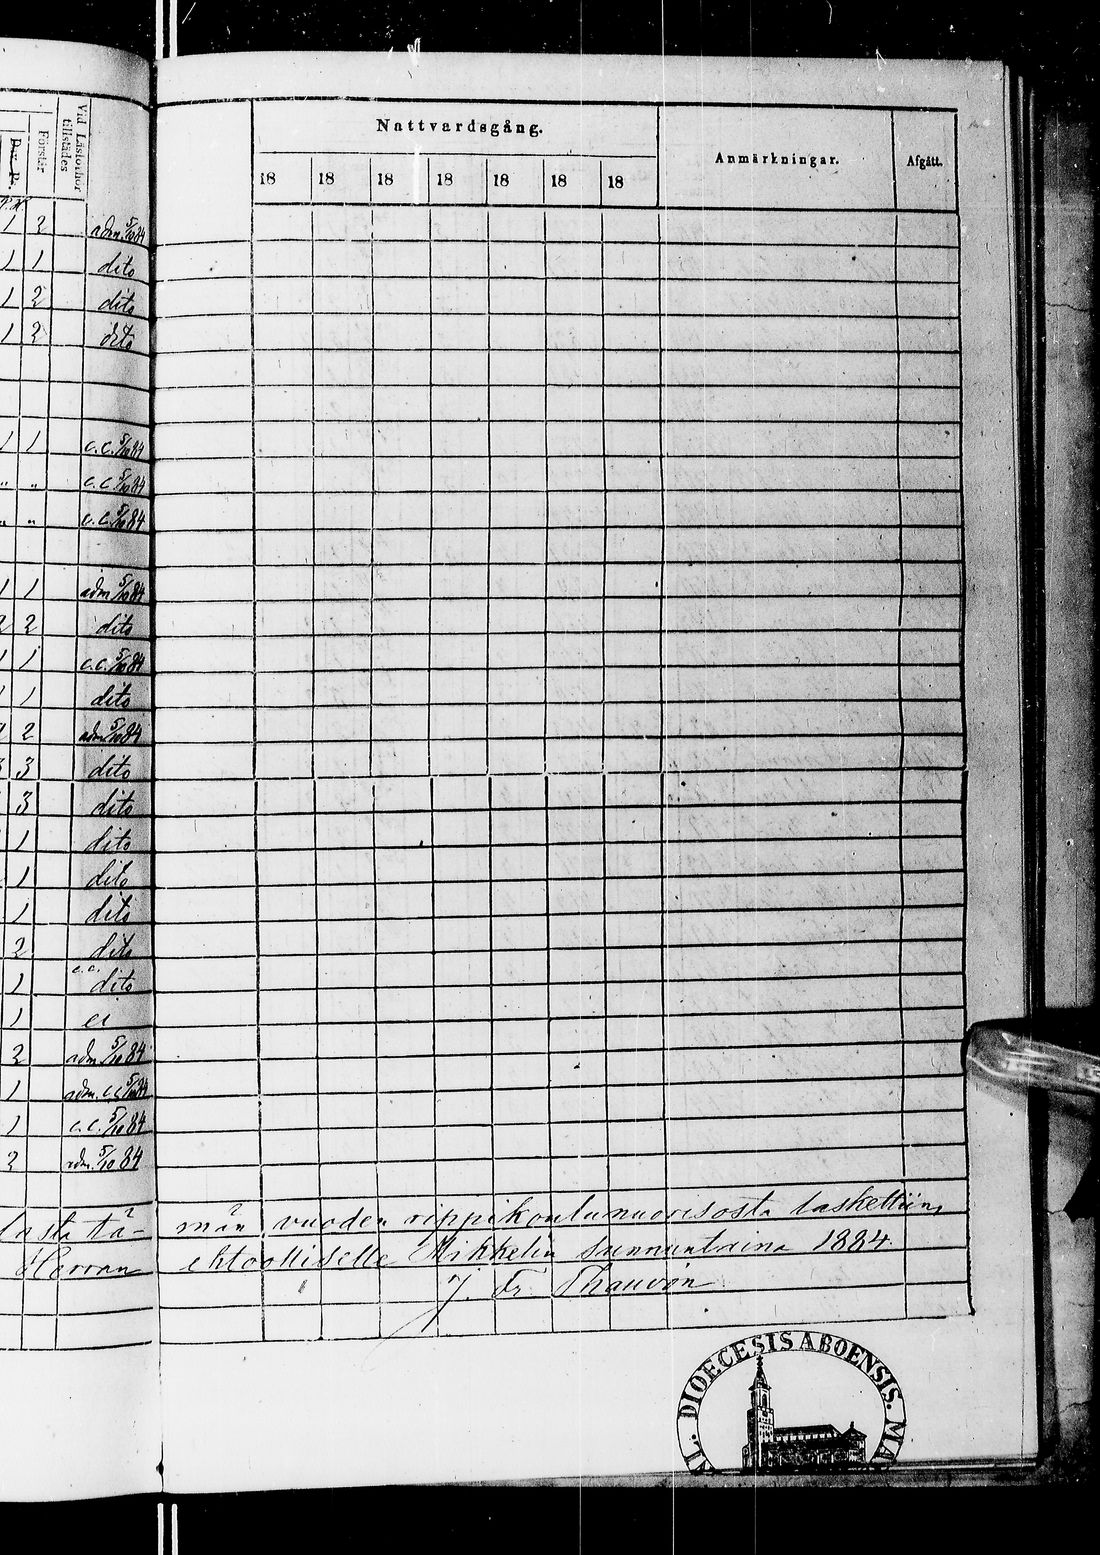 Vid Läseförhör tillstädes
Förstår
Nattvardsgång.
Anmärkningar.
Afgått.
18 18 18 18 18 18 18
1 2 adm. 5/10 84
1 1 dito
1 2 dito
1 2 dito
1 1 c.c. 5/10 84
" " c.c. 5/10 84
" " c.c. 5/10 84
1 1 adm 5/10 84
2 2 dito
1 1 c.c. 5/10 84
1 1 dito
2 adm 5/10 84
3 3 dito
3 dito
1 dito
1 dito
1 dito
2 dito
1 c.c. dito
1 ei
2 adm 5/10 84
1 adm. c.c. 5/10 84
1 c.c. 5/10 84
2 adm. 5/10 84
tä- män vuoden rippikoulunuorisosta laskettiin
Herran ehtoolliselle Mikkelin sunnuntaina 1884.
J. Fr. Thauvón
DIOECESIS ABOENSIS. MA